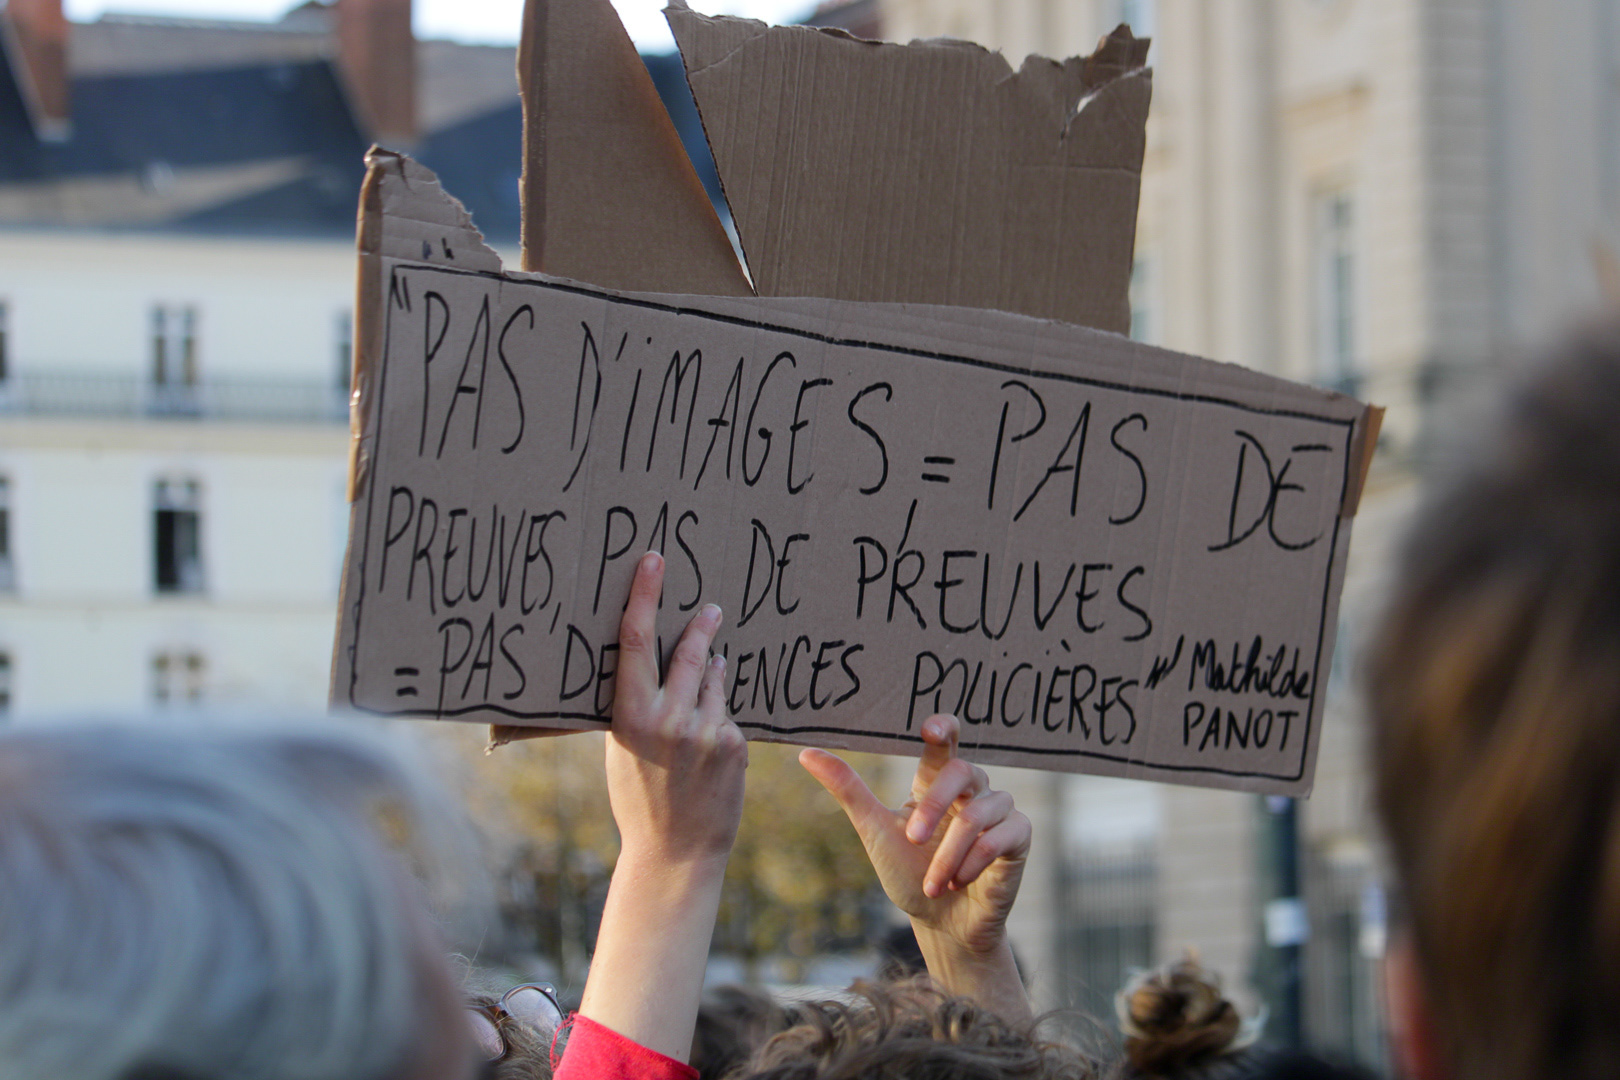 "PAS D'iMAGES, = PAS DE
PREUVES, PAS DE PREUVES
= PAS DE POLICIÈRES" Mathilde
PANOT